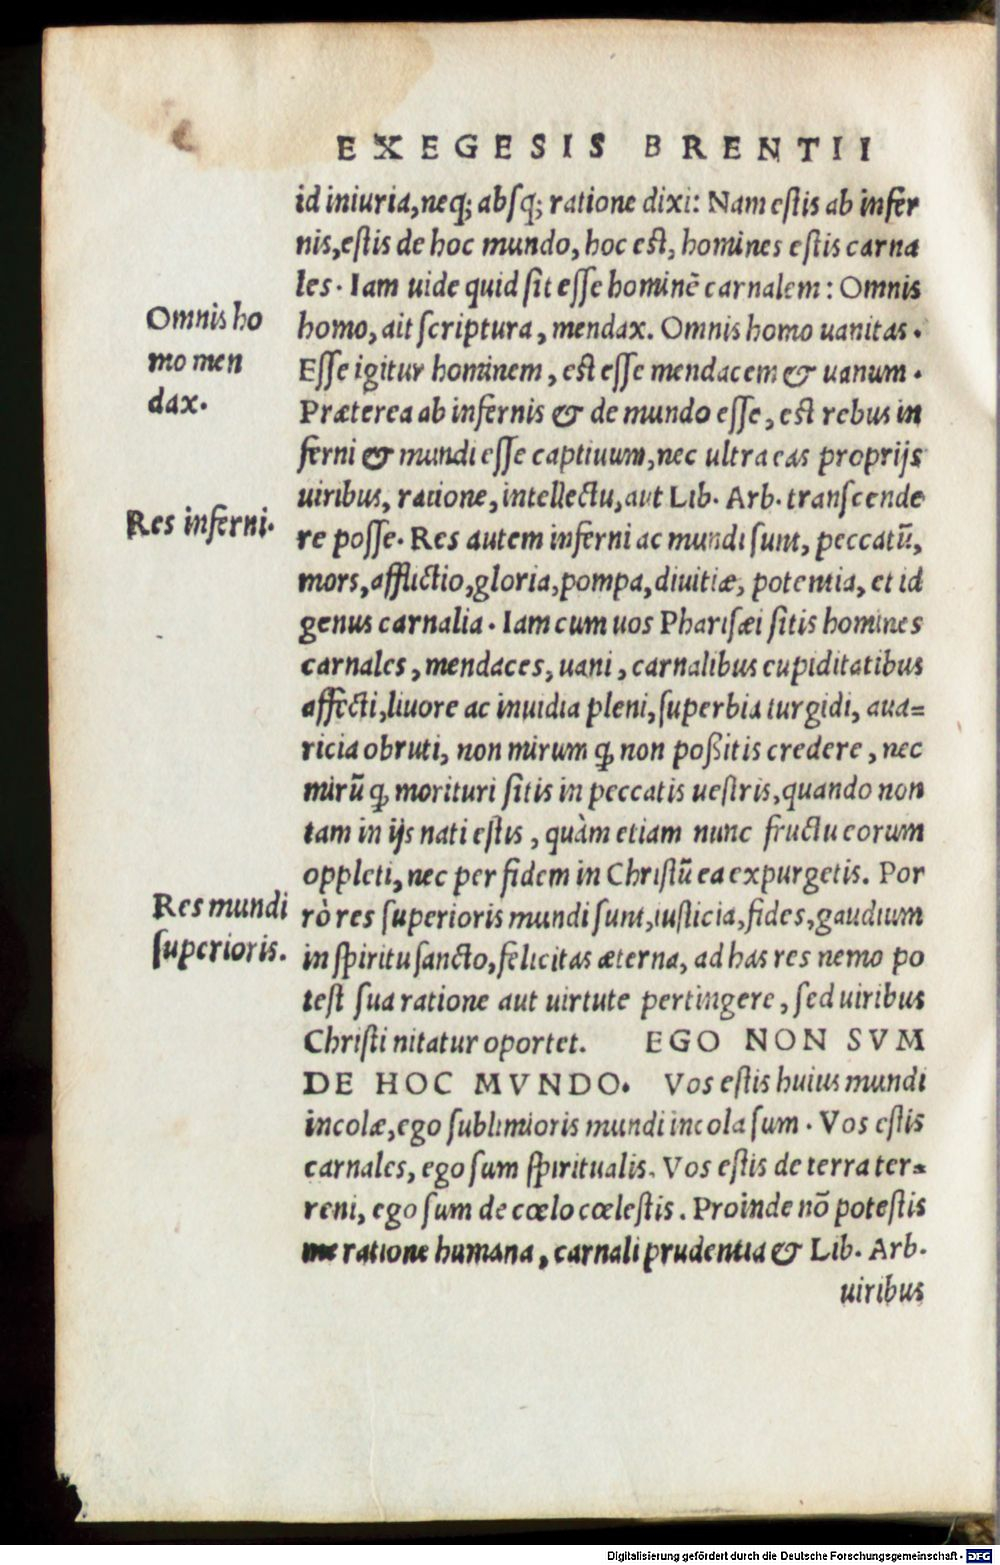 EXEGESIS BRENTII
id iniuria, neq; absq; ratione dixi: Nam estis ab infer
nis, estis de hoc mundo, hoc est, homines estis carna
les. Iam uide quid sit esse hominẽ carnalem: Omnis
homo, ait scriptura, mendax. Omnis homo uanitas.
Esse igitur hominem, est esse mendacem & uanum.
Præterea ab infernis & de mundo esse, est rebus in
ferni & mundi esse captiuum, nec ultra eas proprijs
uiribus, ratione, intellectu, aut Lib. Arb. transcende
re posse. Res autem inferni ac mundi sunt, peccatũ,
mors, afflictio, gloria, pompa, diuitiæ, potentia, et id
genus carnalia. Iam cum uos Pharisæi sitis homines
carnales, mendaces, uani, carnalibus cupiditatibus
affecti, liuore ac inuidia pleni, superbia turgidi, aua=
ricia obruti, non mirum ꝙ non poßitis credere, nec
mirũ ꝙ morituri sitis in peccatis uestris, quando non
tam in ijs nati estis, quàm etiam nunc fructu eorum
oppleti, nec per fidem in Christũ ea expurgetis. Por
rò res superioris mundi sunt, iusticia, fides, gaudium
in spiritu sancto, felicitas æterna, ad has res nemo po
test sua ratione aut uirtute pertingere, sed uiribus
Christi nitatur oportet. EGO NON SVM
DE HOC MVNDO. Vos estis huius mundi
incolæ, ego sublimioris mundi incola sum. Vos estis
carnales, ego sum spiritualis. Vos estis de terra ter=
reni, ego sum de cœlo cœlestis. Proinde nõ potestis
me ratione humana, carnali prudentia & Lib. Arb.
uiribus
Omnis ho
mo men
dax.
Res inferni.
Res mundi
superioris.
Digitalisierung gefördert durch die Deutsche Forschungsgemeinschaft - DFG